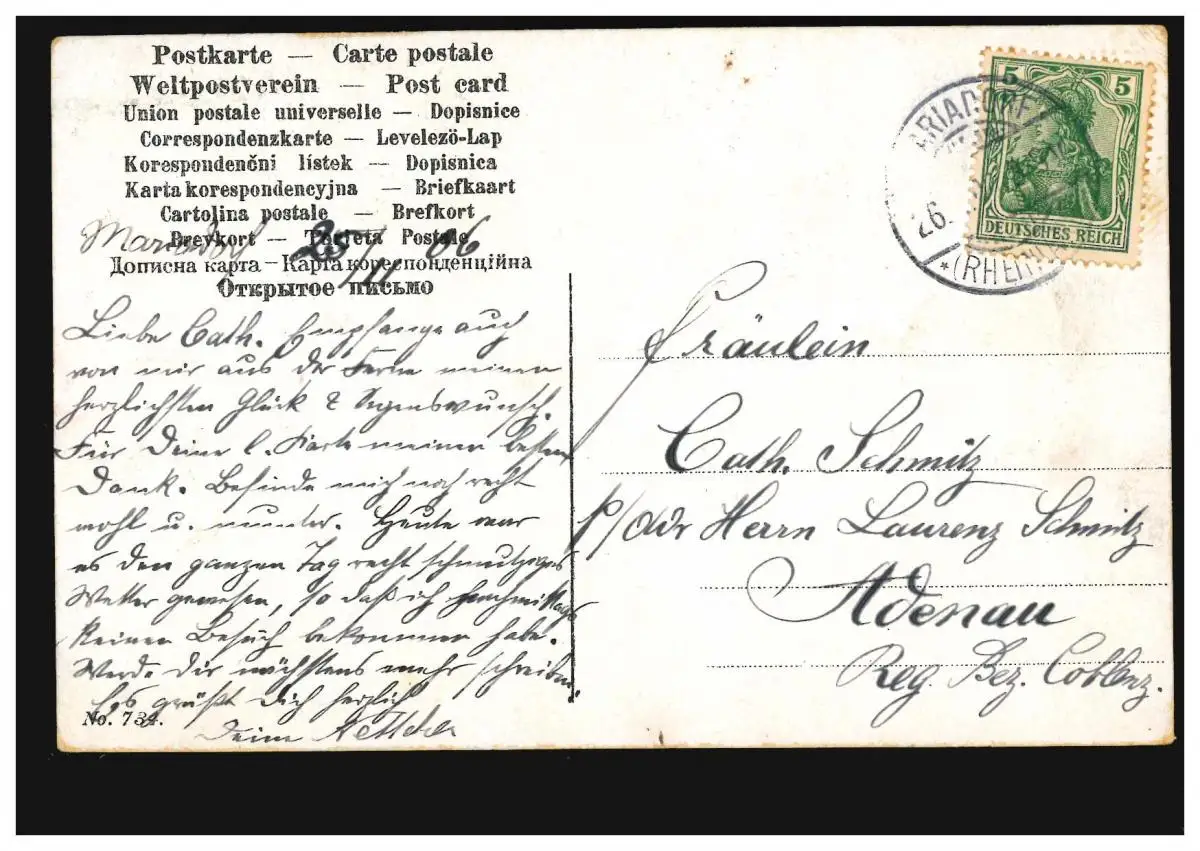 Postkarte — Carte postale
Weltpostverein — Post card
Union postale universelle — Dopisnice
Correspondenzkarte — Levelezö-Lap
Korespondenčni listek — Dopisnica
Karta korespondencyjna — Briefkaart
Cartolina postale — Brefkort
Brevkort — Tarjeta Postale
Mariadorf 25/11 06
Дописна карта — Карта кореспонденційна
Открытое письмо
Liebe Cath. Empfange auch
von mir aus der Ferne meinen
herzlichsten Glück & Segenswunsch.
Für Deine l. Karte meinen besten
Dank. Befinde mich noch recht
wohl u. munter. Heute war
es den ganzen Tag recht schmutziges
Wetter gewesen, so daß ich nachmittags
keinen Besuch bekommen habe.
Werde dir nächstens mehr schreiben.
Es grüßt Dich herzlich
Deine
No. 734.
5 5
DEUTSCHES REICH
ARIADORF
26.
* (RHEIN
Fräulein
Cath. Schmitz
p/adr Herrn Laurenz Schmitz
Adenau
Reg. Bez. Coblenz.